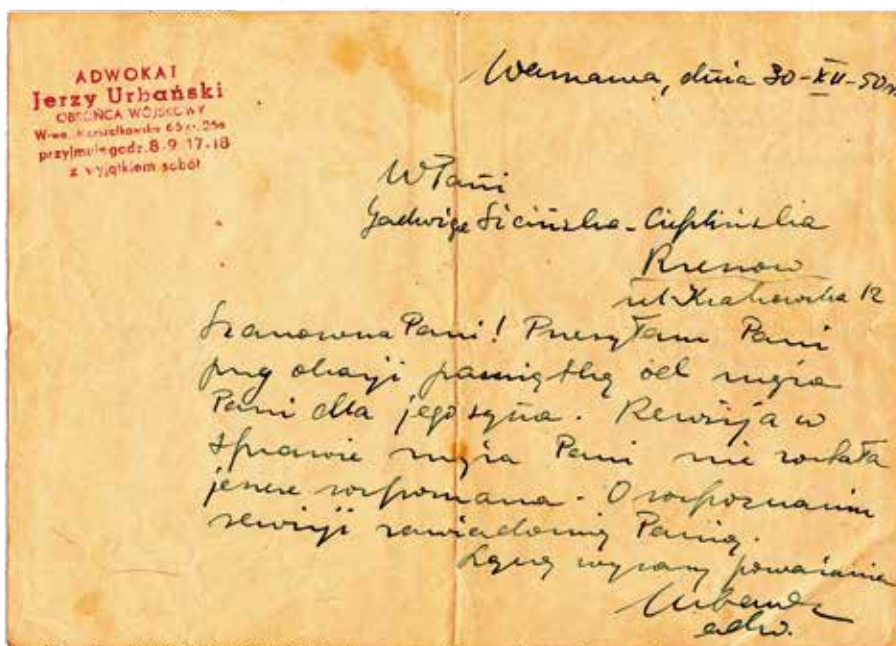 ADWOKAT
Jerzy Urbański
OBROŃCA WOJSKOWY
W-wa, Marszałkowska 65
przyjmuje godz. 8-9 17-18
z wyjątkiem sobót
Warszawa, dnia 30-XII-50 r.
WPani
Jadwiga Sicińska-Cieplińska
Rzeszów
ul. Krakowska 12
Szanowna Pani! Przesyłam Pani
przy okazji pamiątkę od męża
Pani dla jego syna. Rewizja w
sprawie męża Pani nie została
jeszcze rozpoznana. O rozpoznaniu
rewizji zawiadomię Panią.
Łączę wyrazy poważania
Urbański
adw.